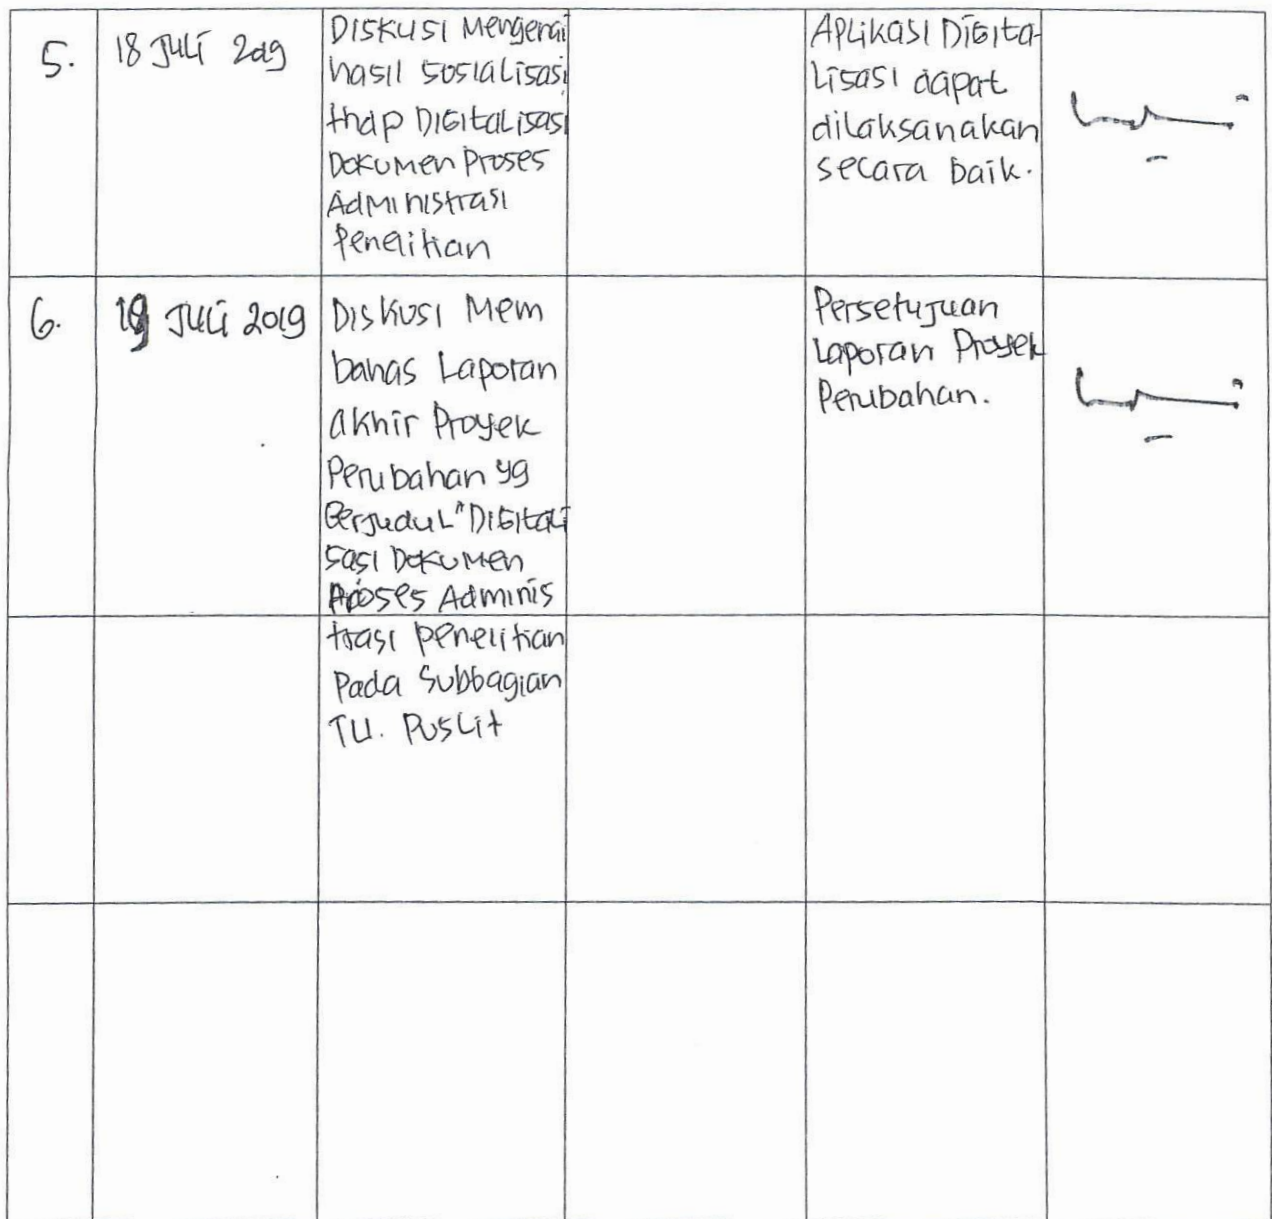 5.
18 Juli 2019
Diskusi Mengenai
hasil sosialisasi
thdp Digitalisasi
Dokumen Proses
Administrasi
Penelitian
Aplikasi Digita-
lisasi dapat
dilaksanakan
secara baik.
6.
19 Juli 2019
Diskusi Mem
bahas Laporan
akhir Proyek
Perubahan yg
Berjudul "Digitali
sasi Dokumen
Proses Adminis
trasi penelitian
Pada Subbagian
TU. Puslit
Persetujuan
Laporan Proyek
Perubahan.